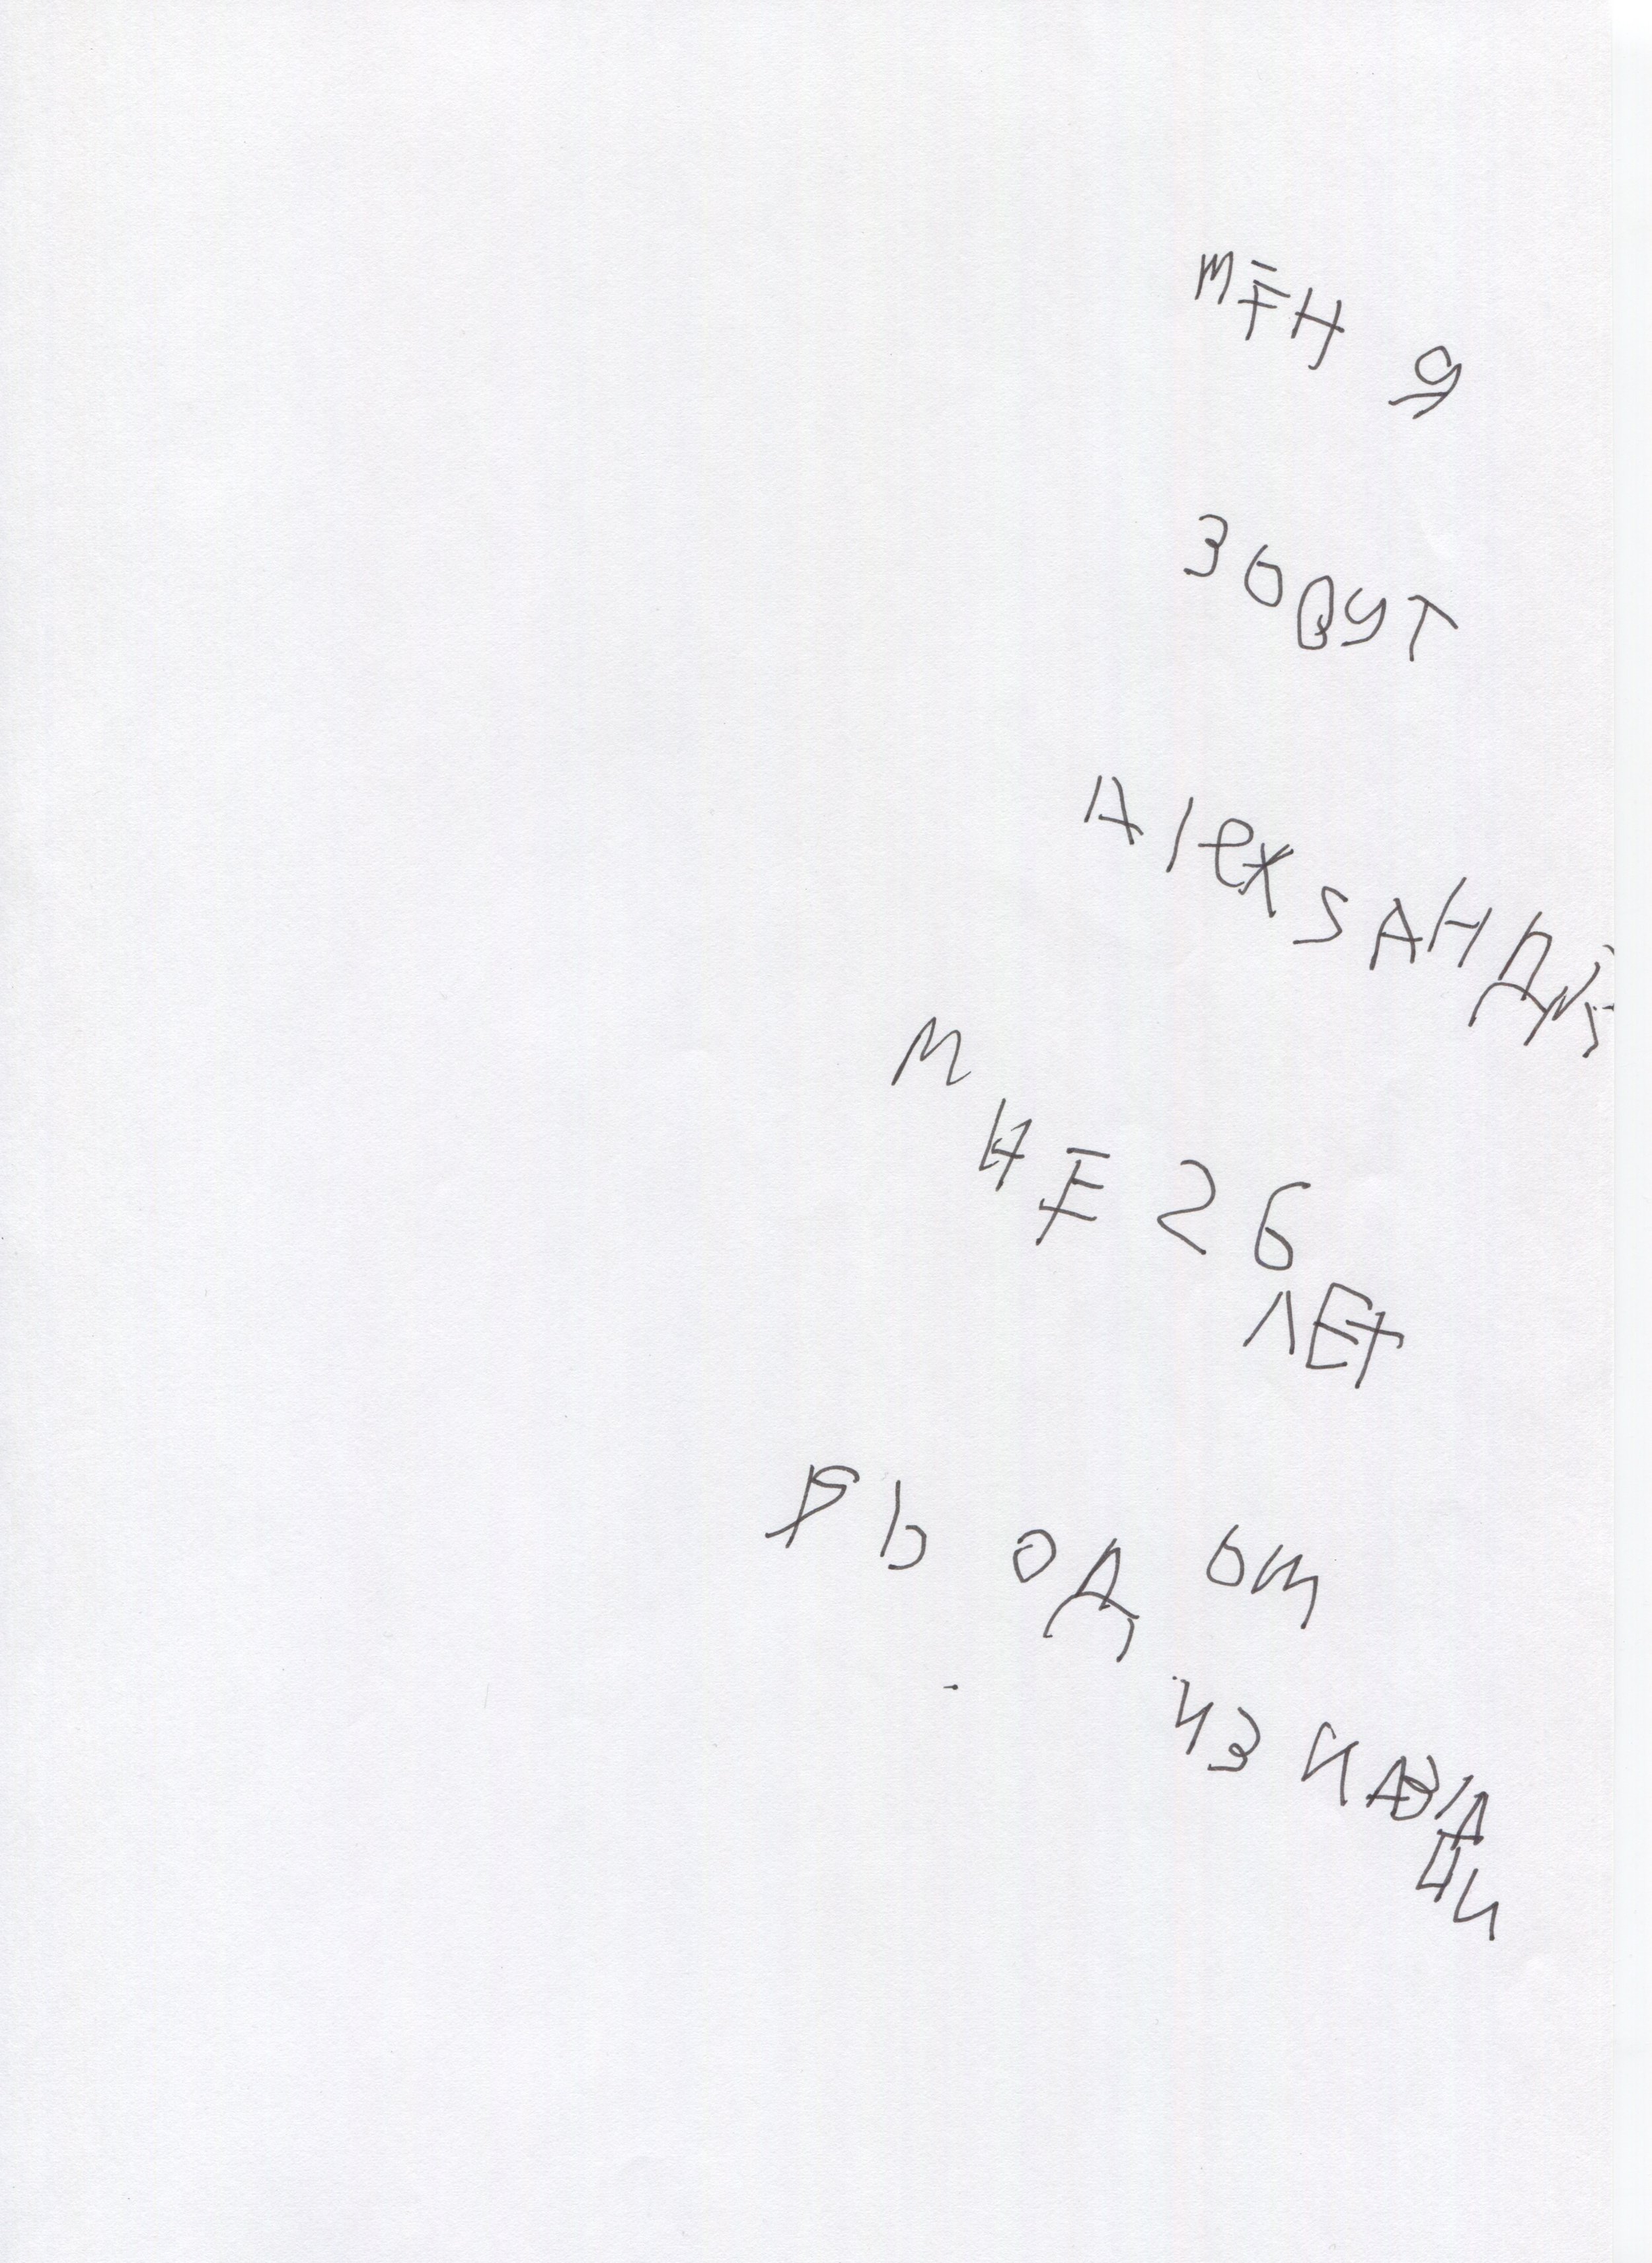 МЕН Я
ЗОВУТ
AlexSАНДR
М НЕ 26
ЛЕТ
РЬ ОД ОМ
ИЗ КАЗА
НИ